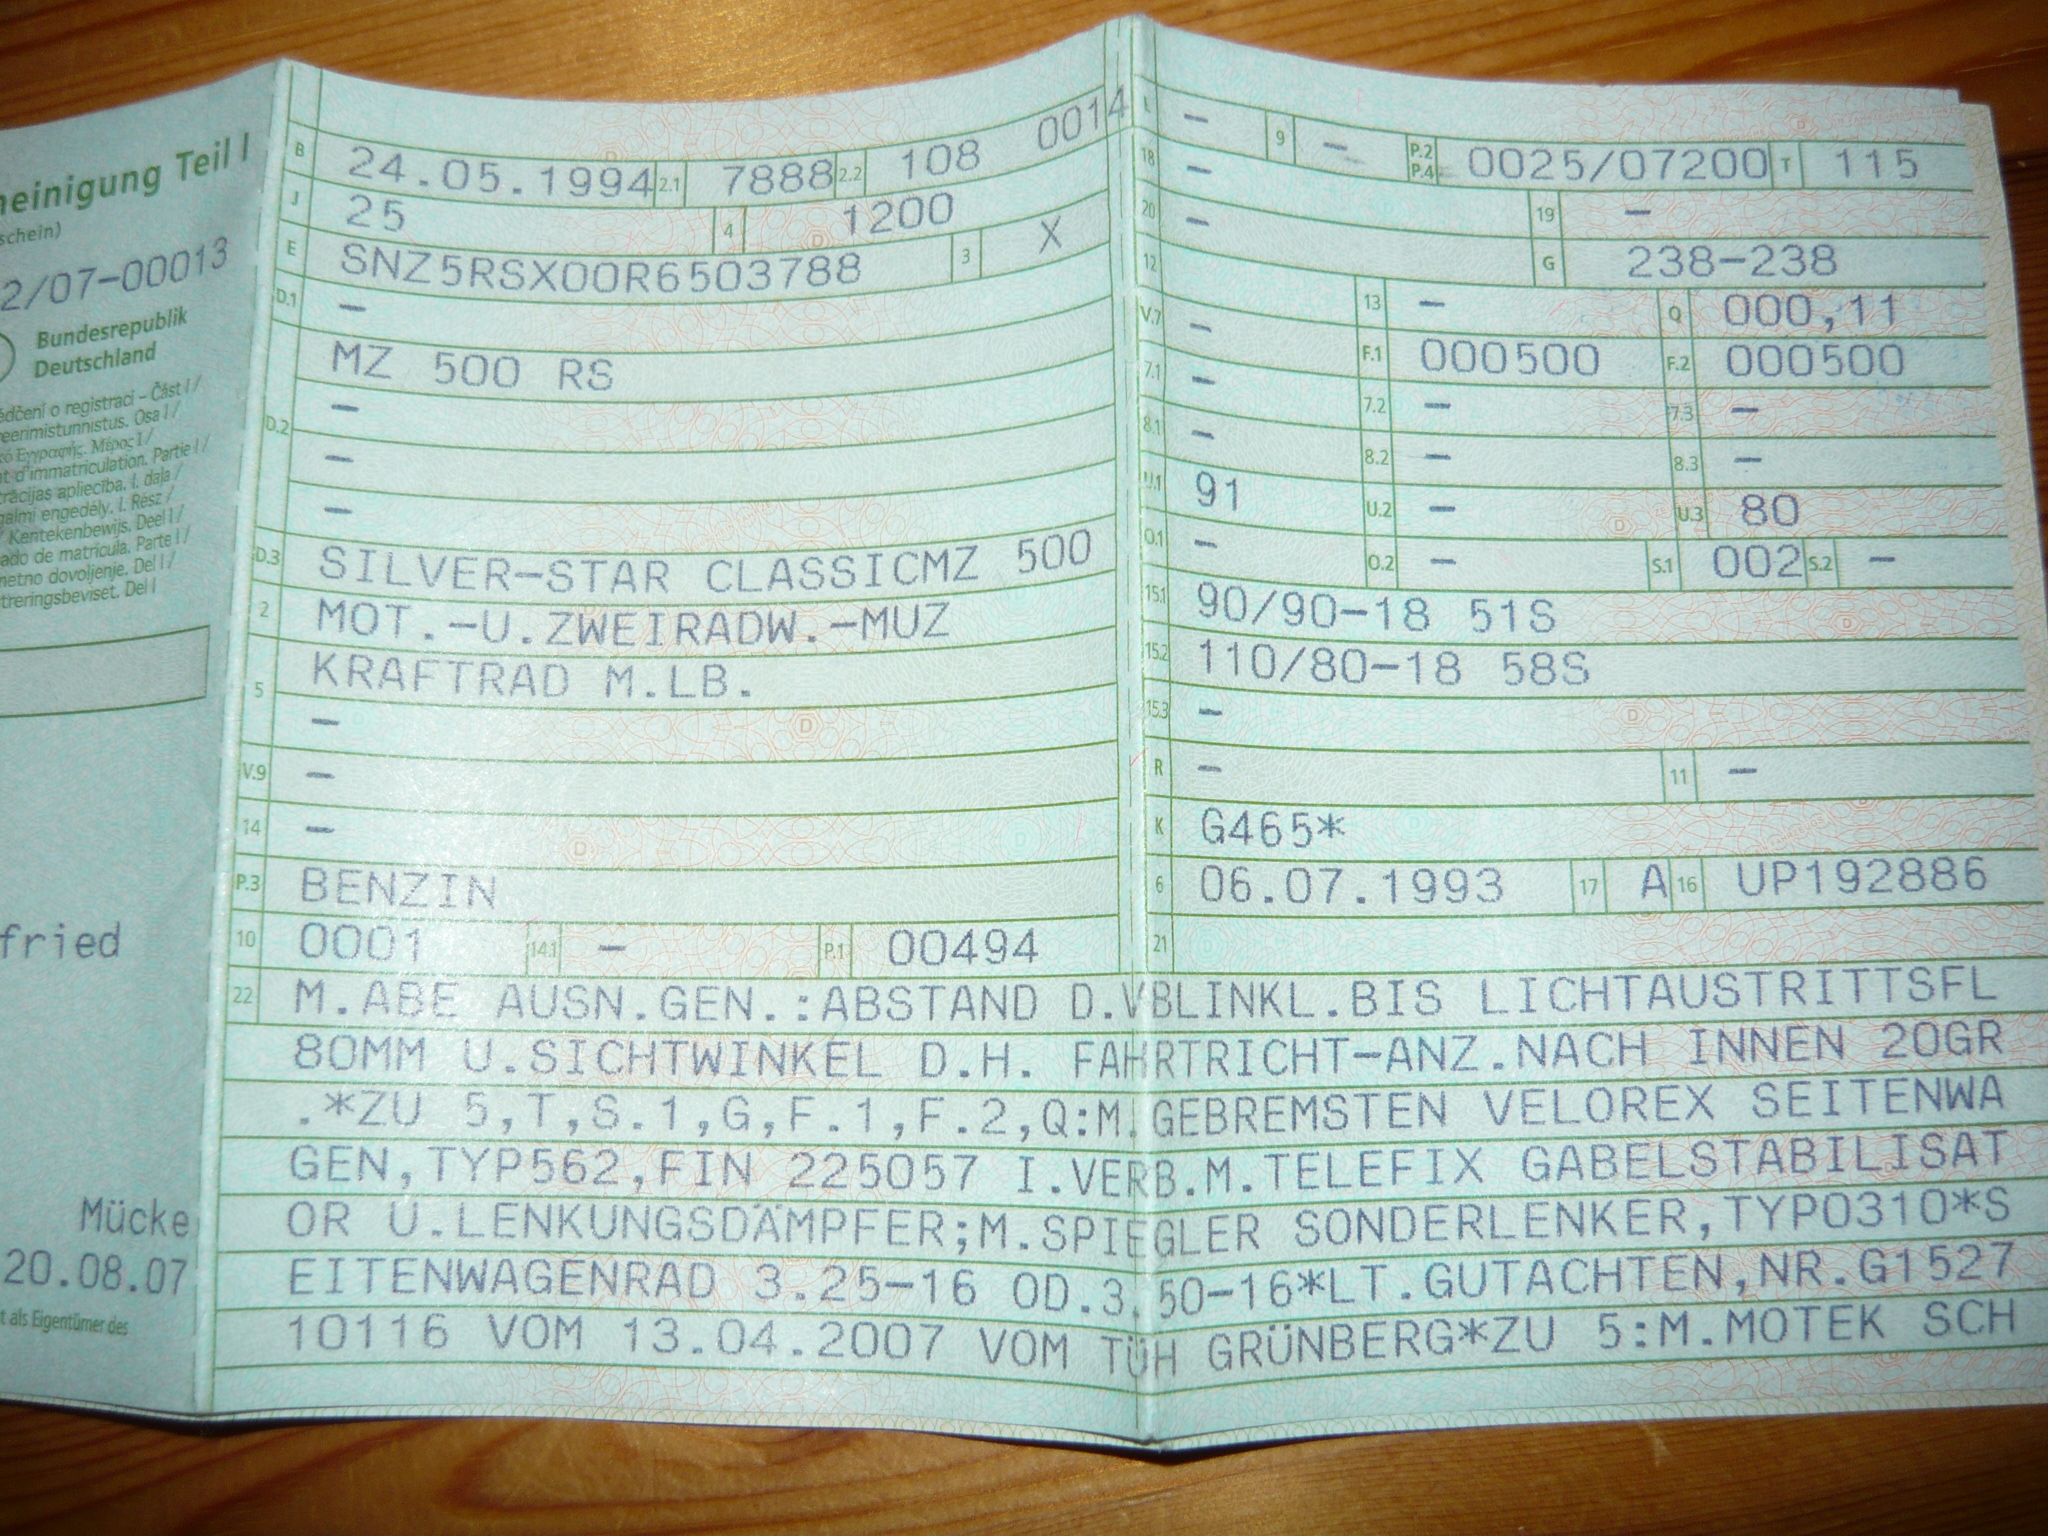 heinigung Teil I
schein)
2/07-00013
Bundesrepublik
Deutschland
o registraci – Část I /
Osa I /
Μέρος I /
d'immatriculation. Partie I /
apliecība. I. daļa /
engedély. I. Rész /
/ Kentekenbewijs. Deel I /
ado de matrícula. Parte I /
dovoljenje. Del I /
treringsbeviset. Del I
fried
Mücke
20.08.07
t als Eigentümer des
B 24.05.1994 2.1 7888 2.2 108 0014
J 25 4 1200
E SNZ5RSX00R6503788 3 X
D.1 –
MZ 500 RS
–
D.2 –
–
D.3 SILVER-STAR CLASSICMZ 500
2 MOT.-U.ZWEIRADW.-MUZ
5 KRAFTRAD M.LB.
–
V.9 –
14 –
P.3 BENZIN
10 0001 14.1 – P.1 00494
L – 9 – P.2 P.4 0025/07200 T 115
18 –
20 – 19 –
12 G 238-238
13 – Q 000,11
V.7 – F.1 000500 F.2 000500
7.1 – 7.2 – 7.3 –
8.1 – 8.2 – 8.3 –
U.1 91 U.2 – U.3 80
O.1 – O.2 – S.1 002 S.2 –
15.1 90/90-18 51S
15.2 110/80-18 58S
15.3 –
R – 11 –
K G465*
6 06.07.1993 17 A 16 UP192886
21
22 M.ABE AUSN.GEN.:ABSTAND D.VBLINKL.BIS LICHTAUSTRITTSFL
80MM U.SICHTWINKEL D.H. FAHRTRICHT-ANZ.NACH INNEN 20GR
.*ZU 5,T,S.1,G,F.1,F.2,Q:M.GEBREMSTEN VELOREX SEITENWA
GEN,TYP562,FIN 225057 I.VERB.M.TELEFIX GABELSTABILISAT
OR U.LENKUNGSDÄMPFER;M.SPIEGLER SONDERLENKER,TYP0310*S
EITENWAGENRAD 3.25-16 OD.3.50-16*LT.GUTACHTEN,NR.G1527
10116 VOM 13.04.2007 VOM TÜH GRÜNBERG*ZU 5:M.MOTEK SCH